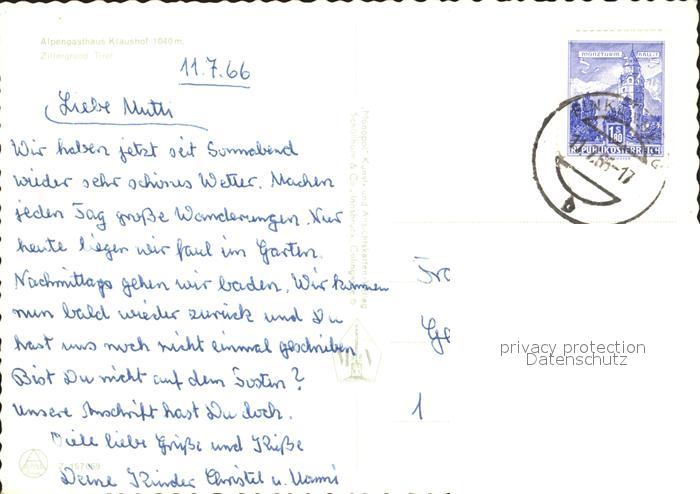 Alpengasthaus Klaushof 1040 m,
Zillergrund Tirol
11.7.66
Liebe Mutti
Wir haben jetzt seit Sonnabend
wieder sehr schönes Wetter. Machen
jeden Tag große Wanderungen. Nur
heute liegen wir faul im Garten.
Nachmittags gehen wir baden. Wir kommen
nun bald wieder zurück und Du
hast uns noch nicht einmal geschrieben
Bist Du nicht auf dem Posten?
Unsere Anschrift hast Du doch.
Viele liebe Grüße und Küße
Deine Kinder Christel u.
157069
MÜNZTURM HALL I. T.
1.80
REPUBLIK ÖSTERREICH
-17
Fra
1
privacy protection
Datenschutz